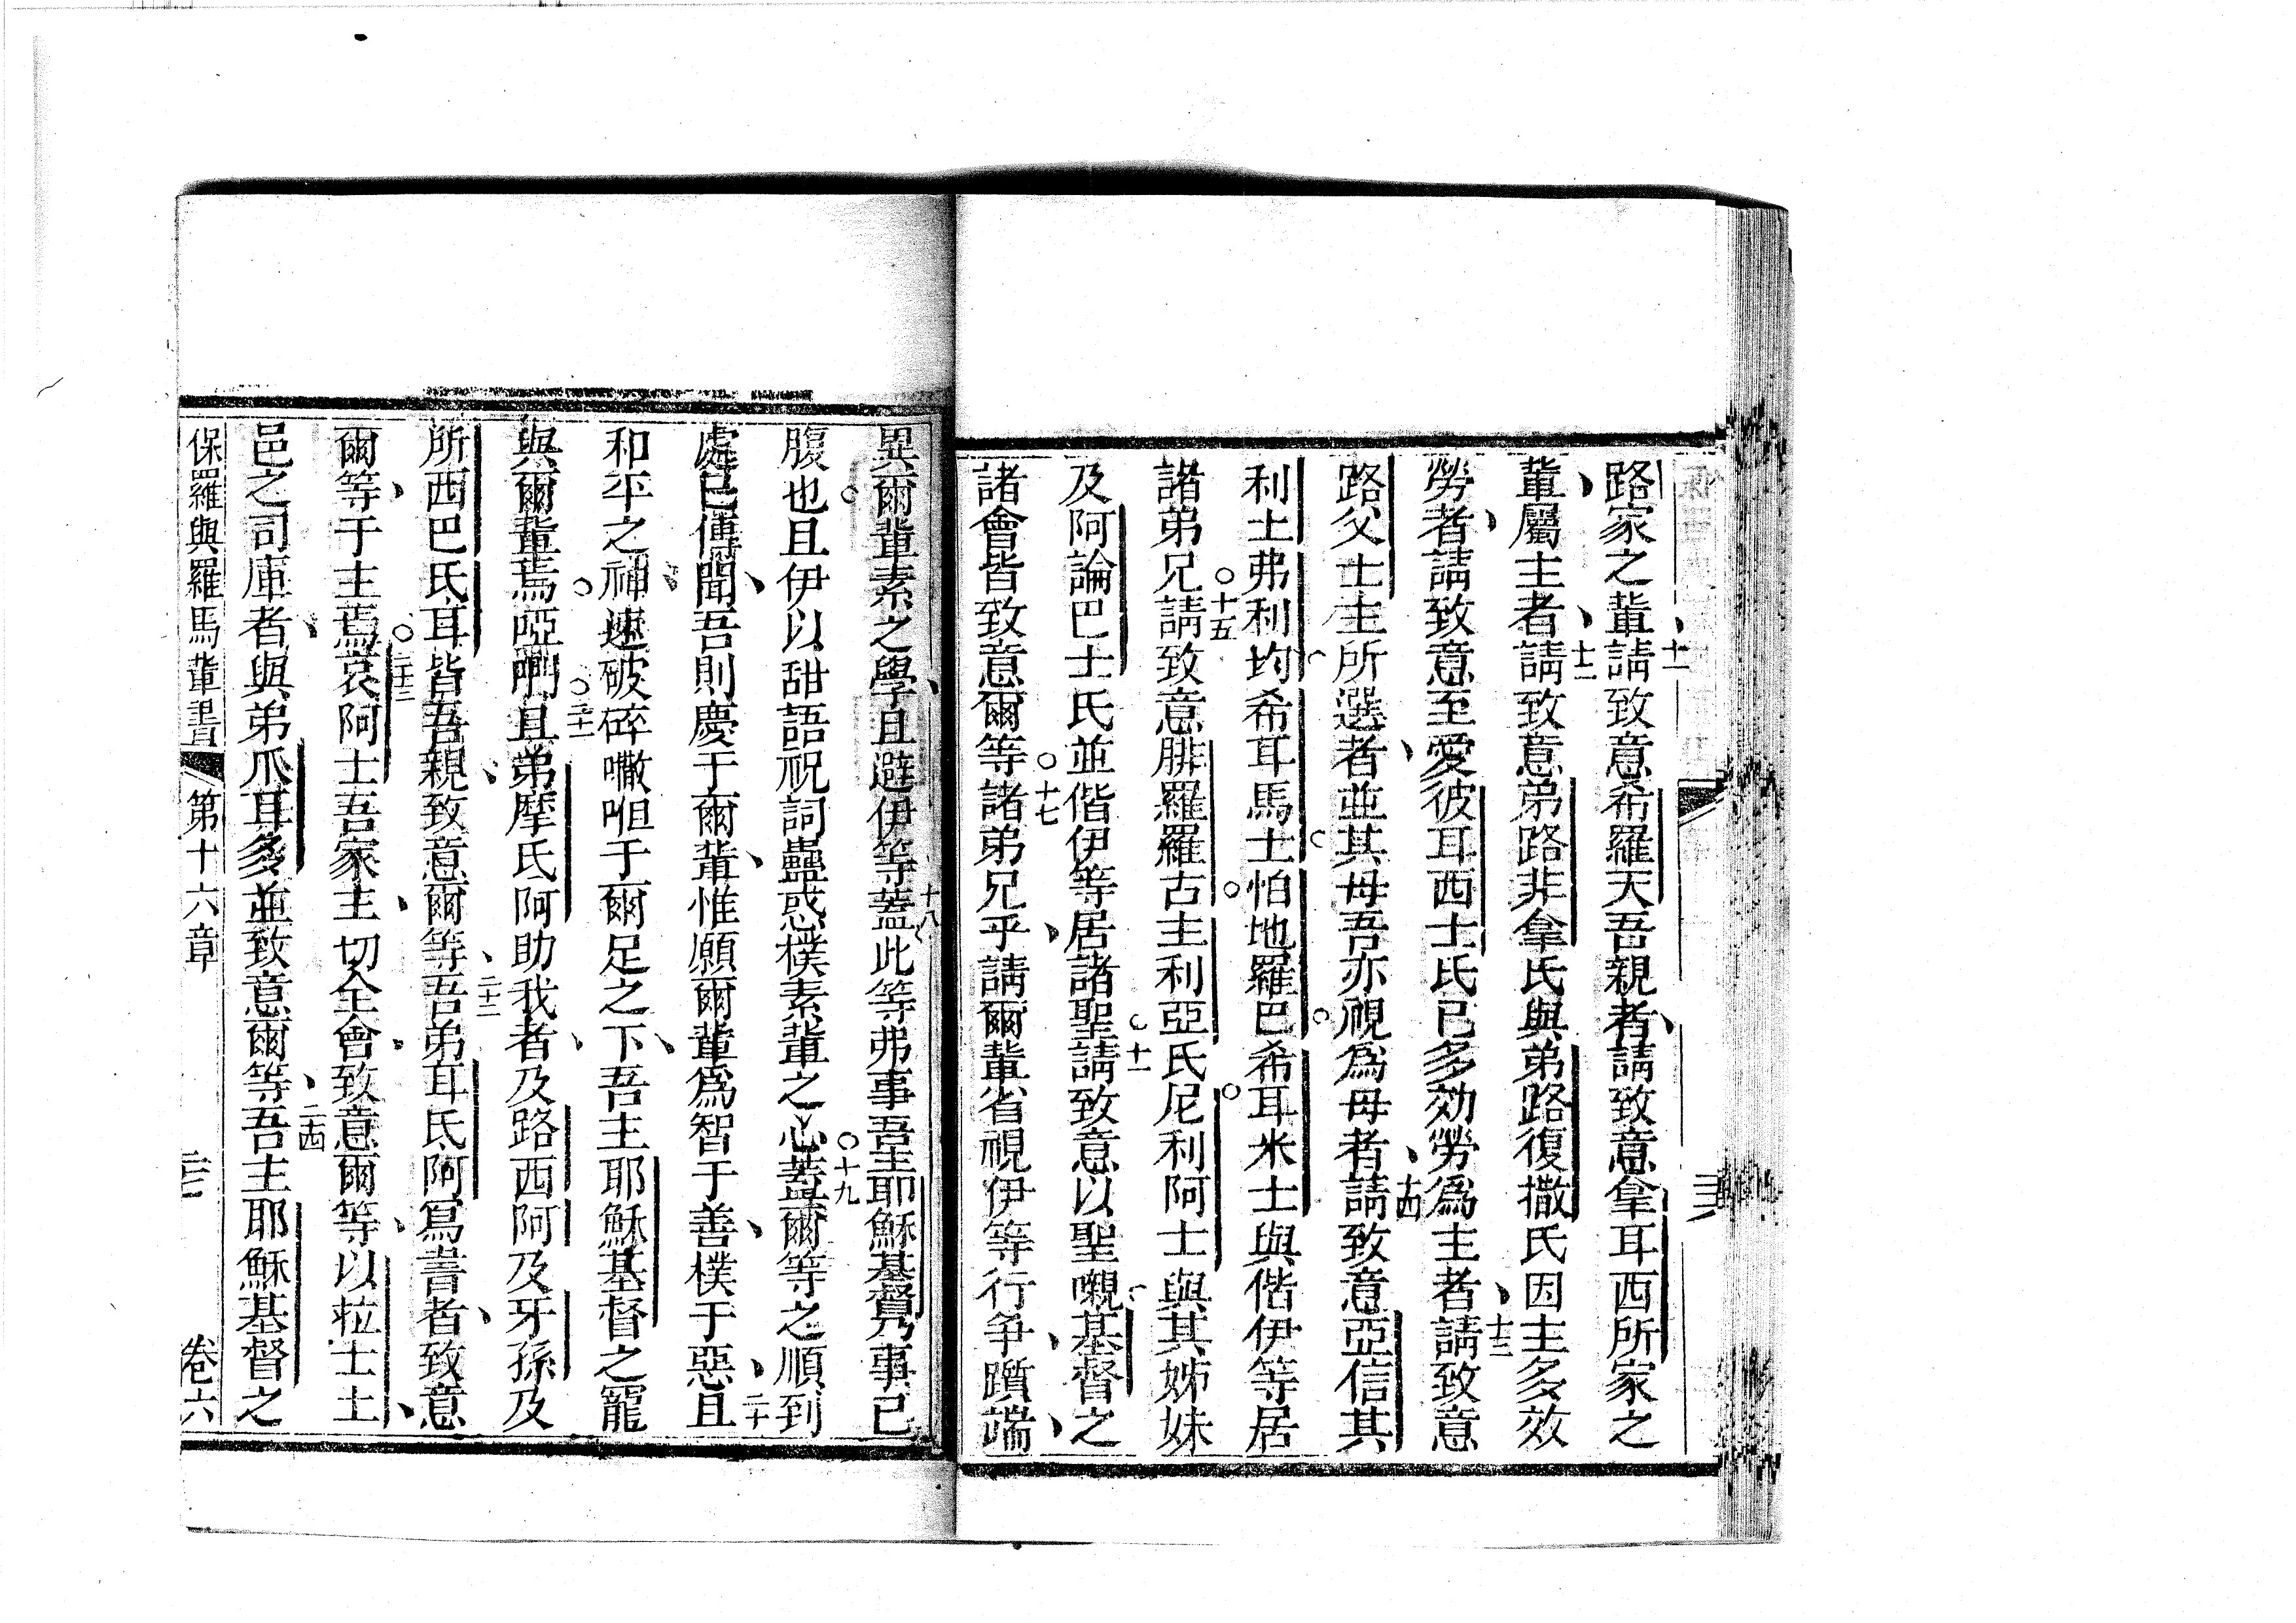 路家之輩請致意希羅天吾親者請致意拿耳西所家之
十一
輩屬主者請致意弟路非拿氏與弟路復撒氏因主多效
十二
勞者請致意至愛彼耳西士氏已多効勞為主者請致意
十三
路父士主所選者並其母吾亦視為母者請致意亞信其
十四
利士弗利均希耳馬士怕地羅巴希耳米士與偕伊等居
諸弟兄請致意腓羅羅古主利亞氏尼利阿士與其姊妹
十五
及阿論巴士氏並偕伊等居諸聖請致意以聖嚫基督之
諸會皆致意爾等諸弟兄乎請爾輩省視伊等行争躓端
十七
異爾輩素之學且避伊等蓋此等弗事吾主耶穌基督乃事己
十八
腹也且伊以甜語祝詞蠱惑樸素輩之心蓋爾等之順到
十九
處已傳聞吾則慶于爾輩惟願爾輩為智于善樸于惡且
二十
和平之神速破碎嗽呾于爾足之下吾主耶穌基督之寵
與爾輩焉啞𠵽且弟摩氏阿助我者及路西阿及牙孫及
二十一
所西巴氐耳皆吾親致意爾等吾弟耳氐阿寫書者致意
二十二
爾等于主焉哀阿士吾家主切全會致意爾等以拉士土
二十三
邑之司庫者與弟爪耳多並致意爾等吾主耶穌基督之
二十四
保羅與羅馬輩書 第十六章 卷六